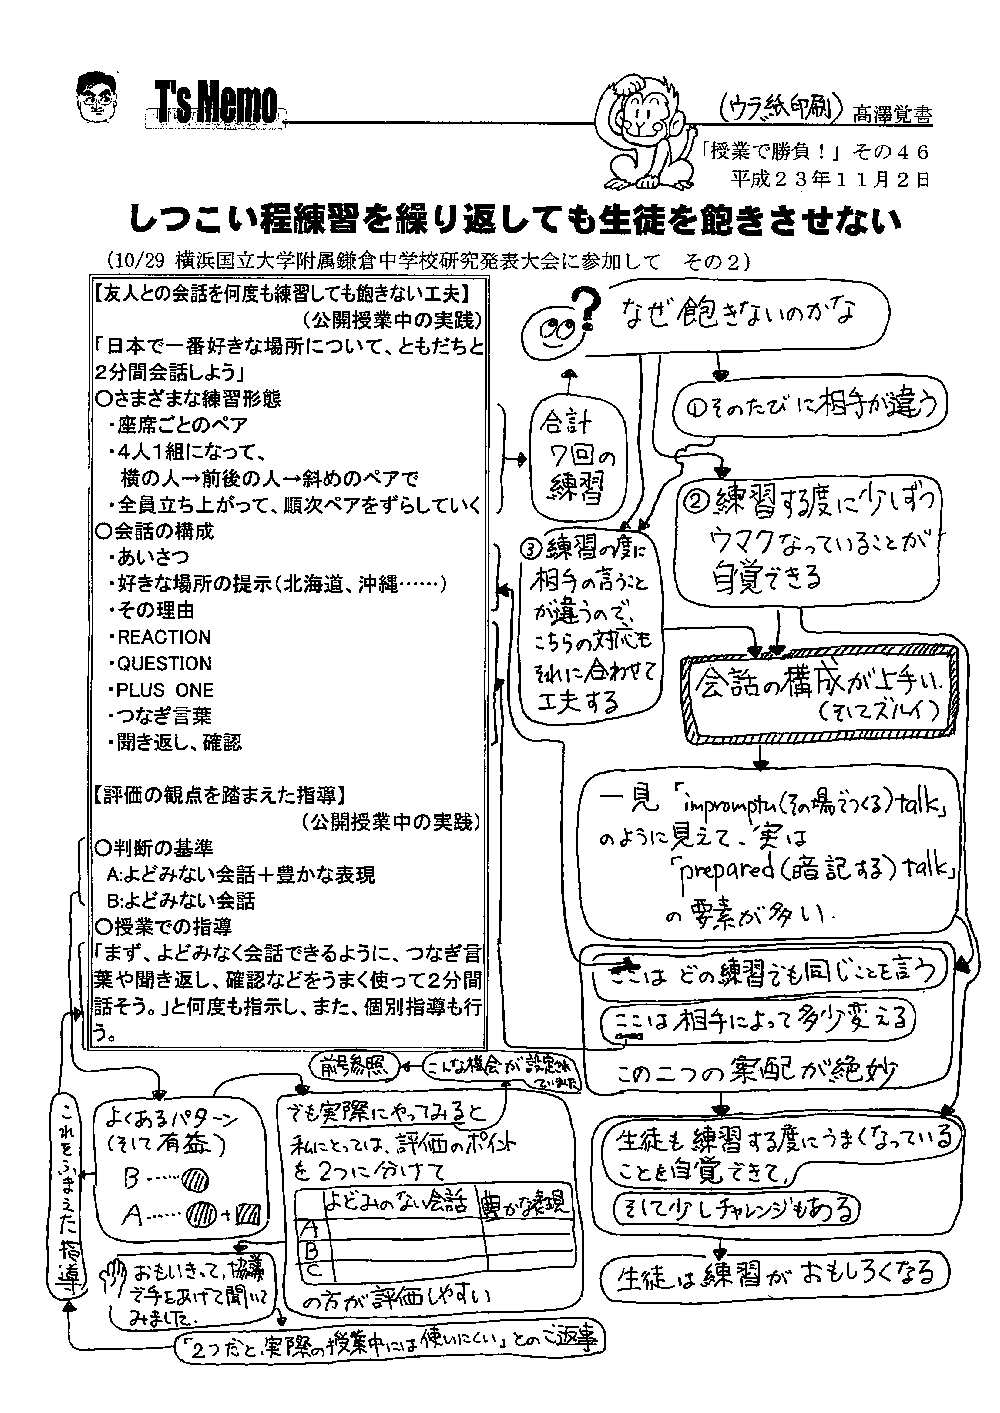 T's Memo
(ウラ紙印刷) 髙澤覚書
「授業で勝負！」その４６
平成２３年１１月２日
しつこい程練習を繰り返しても生徒を飽きさせない
(10/29 横浜国立大学附属鎌倉中学校研究発表大会に参加して　その２)
【友人との会話を何度も練習しても飽きない工夫】
(公開授業中の実践)
「日本で一番好きな場所について、ともだちと
２分間会話しよう」
○さまざまな練習形態
・座席ごとのペア
・４人１組になって、
横の人→前後の人→斜めのペアで
・全員立ち上がって、順次ペアをずらしていく
○会話の構成
・あいさつ
・好きな場所の提示(北海道、沖縄……)
・その理由
・REACTION
・QUESTION
・PLUS ONE
・つなぎ言葉
・聞き返し、確認
【評価の観点を踏まえた指導】
(公開授業中の実践)
○判断の基準
A:よどみない会話＋豊かな表現
B:よどみない会話
○授業での指導
「まず、よどみなく会話できるように、つなぎ言
葉や聞き返し、確認などをうまく使って２分間
話そう。」と何度も指示し、また、個別指導も行
う。
?
なぜ飽きないのかな
合計
７回の
練習
①そのたびに相手が違う
②練習する度に少しずつ
ウマクなっていることが
自覚できる
③練習の度に
相手の言うこと
が違うので、
こちらの対応も
それに合わせて
工夫する
会話の構成が上手い.
(そしてズルイ)
一見「impromptu(その場でつくる)talk」
のように見えて、実は
「prepared(暗記する)talk」
の要素が多い.
ここはどの練習でも同じことを言う
ここは相手によって多少変える
この二つの案配が絶妙
生徒も練習する度にうまくなっている
ことを自覚できて,
そして少しチャレンジもある
生徒は練習がおもしろくなる
前号参照
こんな機会が設定され
ていました
これをふまえた指導
よくあるパターン
(そして有益)
B……
A……+
でも実際にやってみると
私にとっては、評価のポイント
を２つに分けて
よどみのない会話 豊かな表現
A
B
C
の方が評価しやすい
おもいきって,協議
で手をあげて聞いて
みました.
「２つだと,実際の授業中には使いにくい」とのご返事